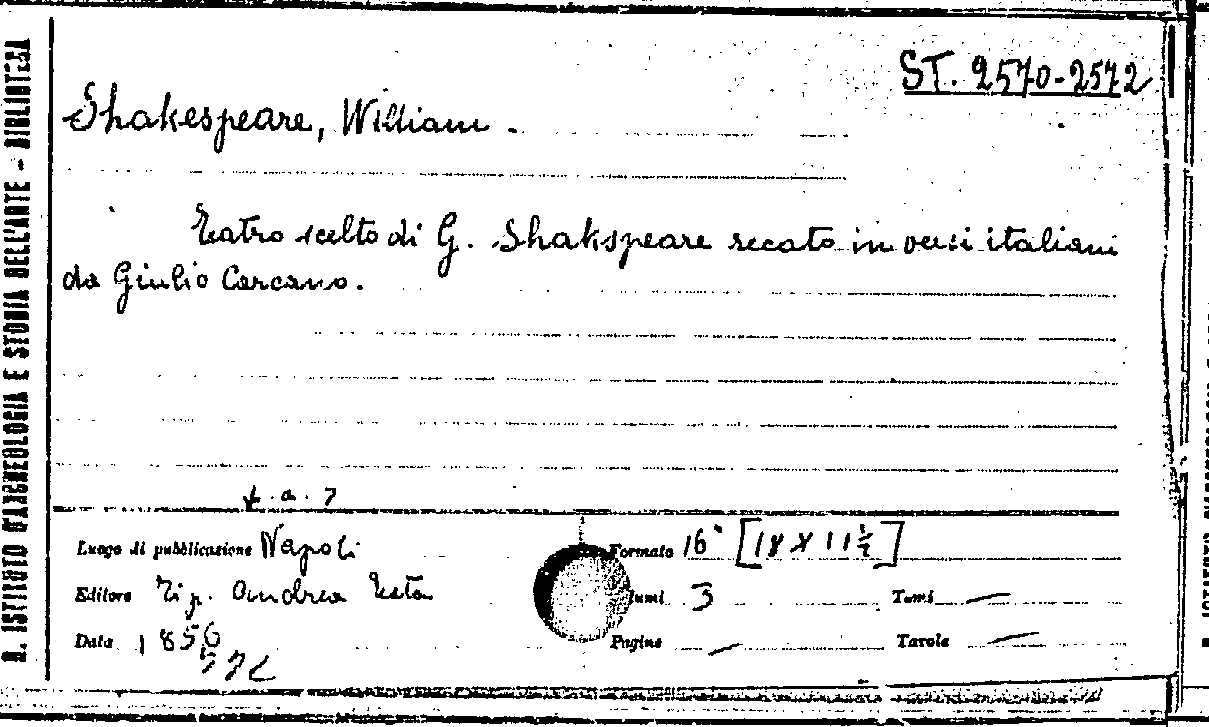 ST. 2570-2572
Shakespeare, William.
Teatro scelto di G. Shakspeare recato in versi italiani
da Giulio Carcano.
Luogo di pubblicazione Napoli
Formato 16° [18 x 11 ½]
Editore Tip. Andrea Festa
lumi 3
Tomi —
Data 1856
Pagine —
Tavole —
R. ISTITUTO D'ARCHEOLOGIA E STORIA DELL'ARTE - BIBLIOTECA